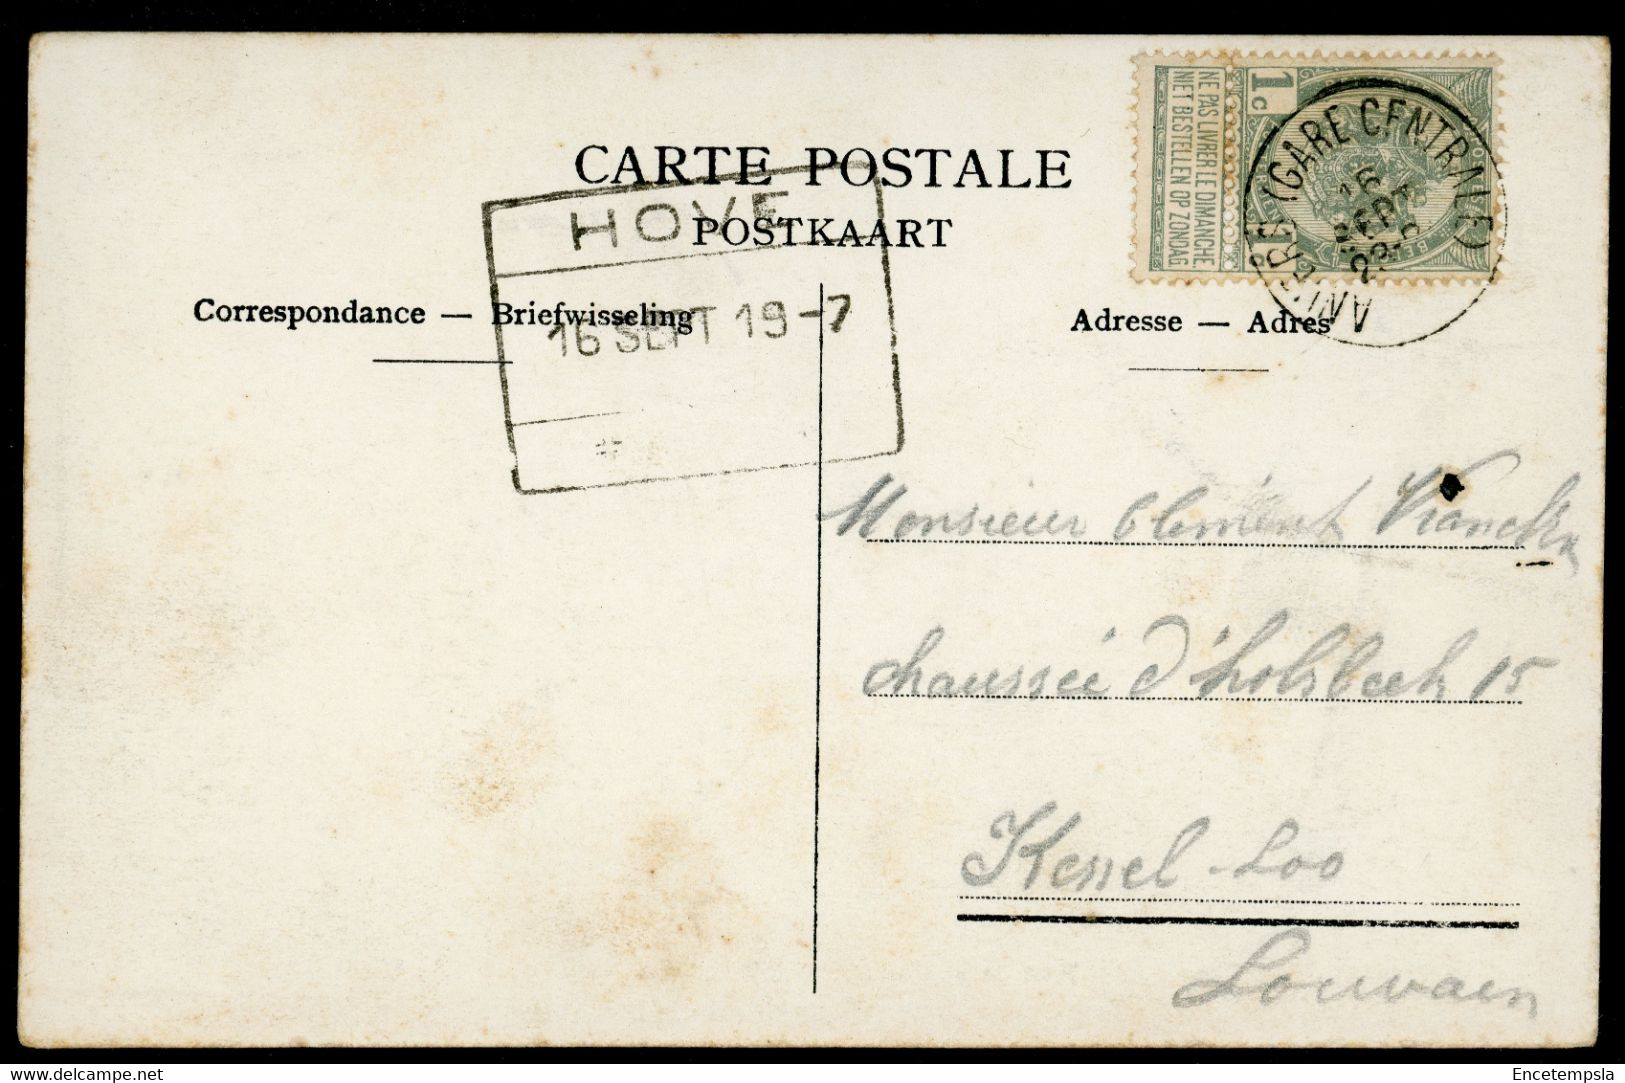 CARTE POSTALE
POSTKAART
Correspondance — Briefwisseling
Adresse — Adres
HOVE
16 SEPT 19-7
1c
NE PAS LIVRER LE DIMANCHE.
NIET BESTELLEN OP ZONDAG
(GARE CENTRALE)
16
SEPT
Monsieur Clément
chaussée d'holsbeek 15
Kessel-Loo
Louvain
delcampe.net
Encetempsla